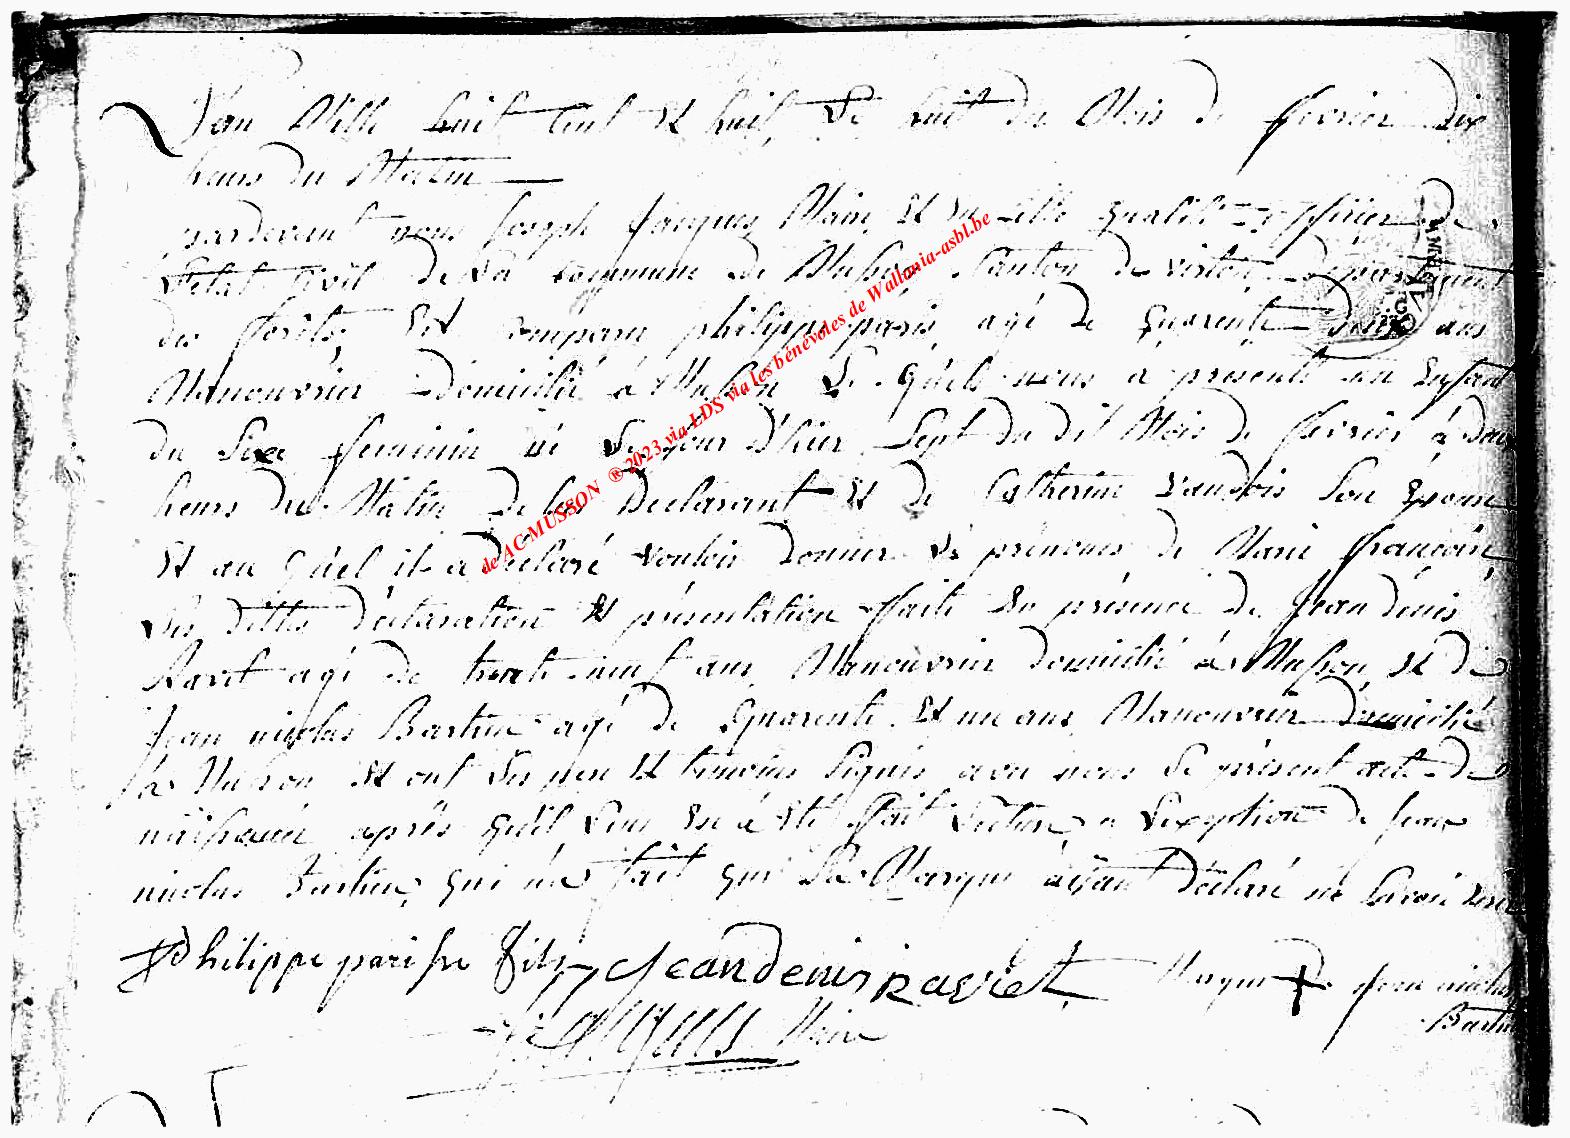 L'an Mille huit Cent Et huit, Le huit du Mois de fevrier dix
heurs du Matin
pardevant nous Joseph Jacques Maire, Et En Cette qualité officier de
L'etat Civil de La Commune de Musson Canton de virton, département
des forêts, Est comparu philippe paris, agé de quarente deux ans
Manouvrier domicilié à Musson Le quel nous a presenté un Enfant
du Sexe feminin né Le jour d'hier Sept du dit Mois de fevrier à deux
heurs du Matin de lui Declarant Et de Catherine vaudois Son Epouse
Et au quel il a Déclaré vouloir donner Les prénoms de Marie françoise
Les dittes déclaration Et présentation faite En présence de Jean denis
Ravet agé de trente neuf ans, Manouvrier domicilié à Musson, Et de
Jean nicolas Bartin agé de quarente Et un ans Manouvrier domicilié
à Musson Et ont Les pere Et témoins Signés avec nous Le présent acte de
naissance après qu'il Leur En à Eté fait Lecture, a L'exception de Jean
nicolas Bartin, qui n'a fait que Sa Marque aÿant déclaré ne Savoir Ecrire
Philippe paris Jean denis Ravet Marque de Jean nicolas
Bartin
Maire
de AC MUSSON ® 2023 via LDS via les bénévoles de Wallonia-asbl.be